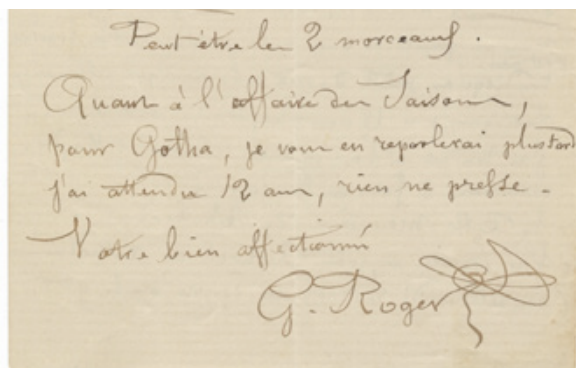 Peut être les 2 morceaux.
Quant à l'affaire des Saisons,
pour Gotha, je vous en reparlerai plus tard
j'ai attendu 12 ans, rien ne presse.
Votre bien affectionné
G. Roger